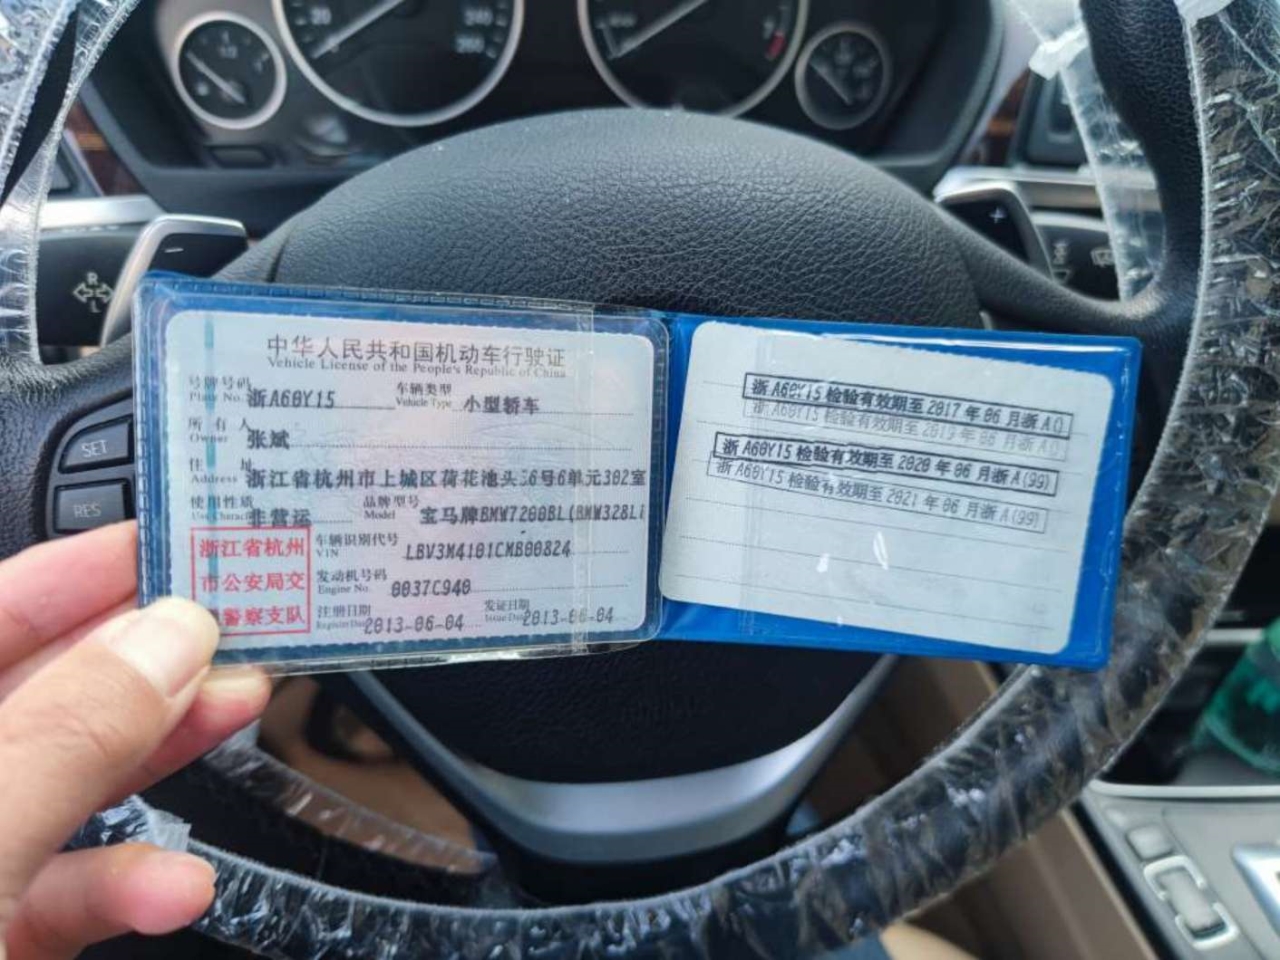 中华人民共和国机动车行驶证
Vehicle License of the People's Republic of China
号牌号码 浙A60Y15 车辆类型 小型轿车
Plate No. Vehicle Type
所有人 张斌
Owner
住址 浙江省杭州市上城区荷花池头36号6单元302室
Address
使用性质 非营运 品牌型号 宝马牌BMW7200BL(BMW328Li
Use Charact Model
浙江省杭州
市公安局交
警察支队
车辆识别代号 LBV3M4101CMB00824
VIN
发动机号码 0037C940
Engine No.
注册日期 2013-06-04 发证日期 2013-06-04
Register Date Issue Date
浙A60Y15检验有效期至2017年06月浙A()
浙A60Y15检验有效期至2019年06月浙A()
浙A60Y15检验有效期至2020年06月浙A(99)
浙A60Y15检验有效期至2021年06月浙A(99)
SET
RES
R
L
−
+
20
240
260